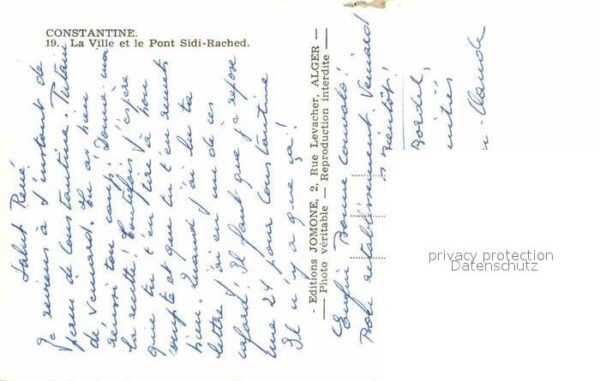 CONSTANTINE.
19. La Ville et le Pont Sidi-Rached.
Salut René
Je reviens à l'instant de
perm de Constantine. Putain
de veinard. Tu as bien
réussi ton coup! Donne-moi
la recette! Toutefois j'espère
que tu t'en tire à bon
compte et que tu t'en remets
bien. Quand j'ai lu ta
lettre j'ai eu un de ces
cafard! Il faut que je repose
une 24 pour Constantine
Il n'y a que ça!
- Editions JOMONE, 2, Rue Levacher, ALGER -
— Photo véritable — Reproduction interdite —
Enfin Bonne convalo!
Bon rétablissement Veinard
Bientôt!
Bordel,
Claude
privacy protection
Datenschutz